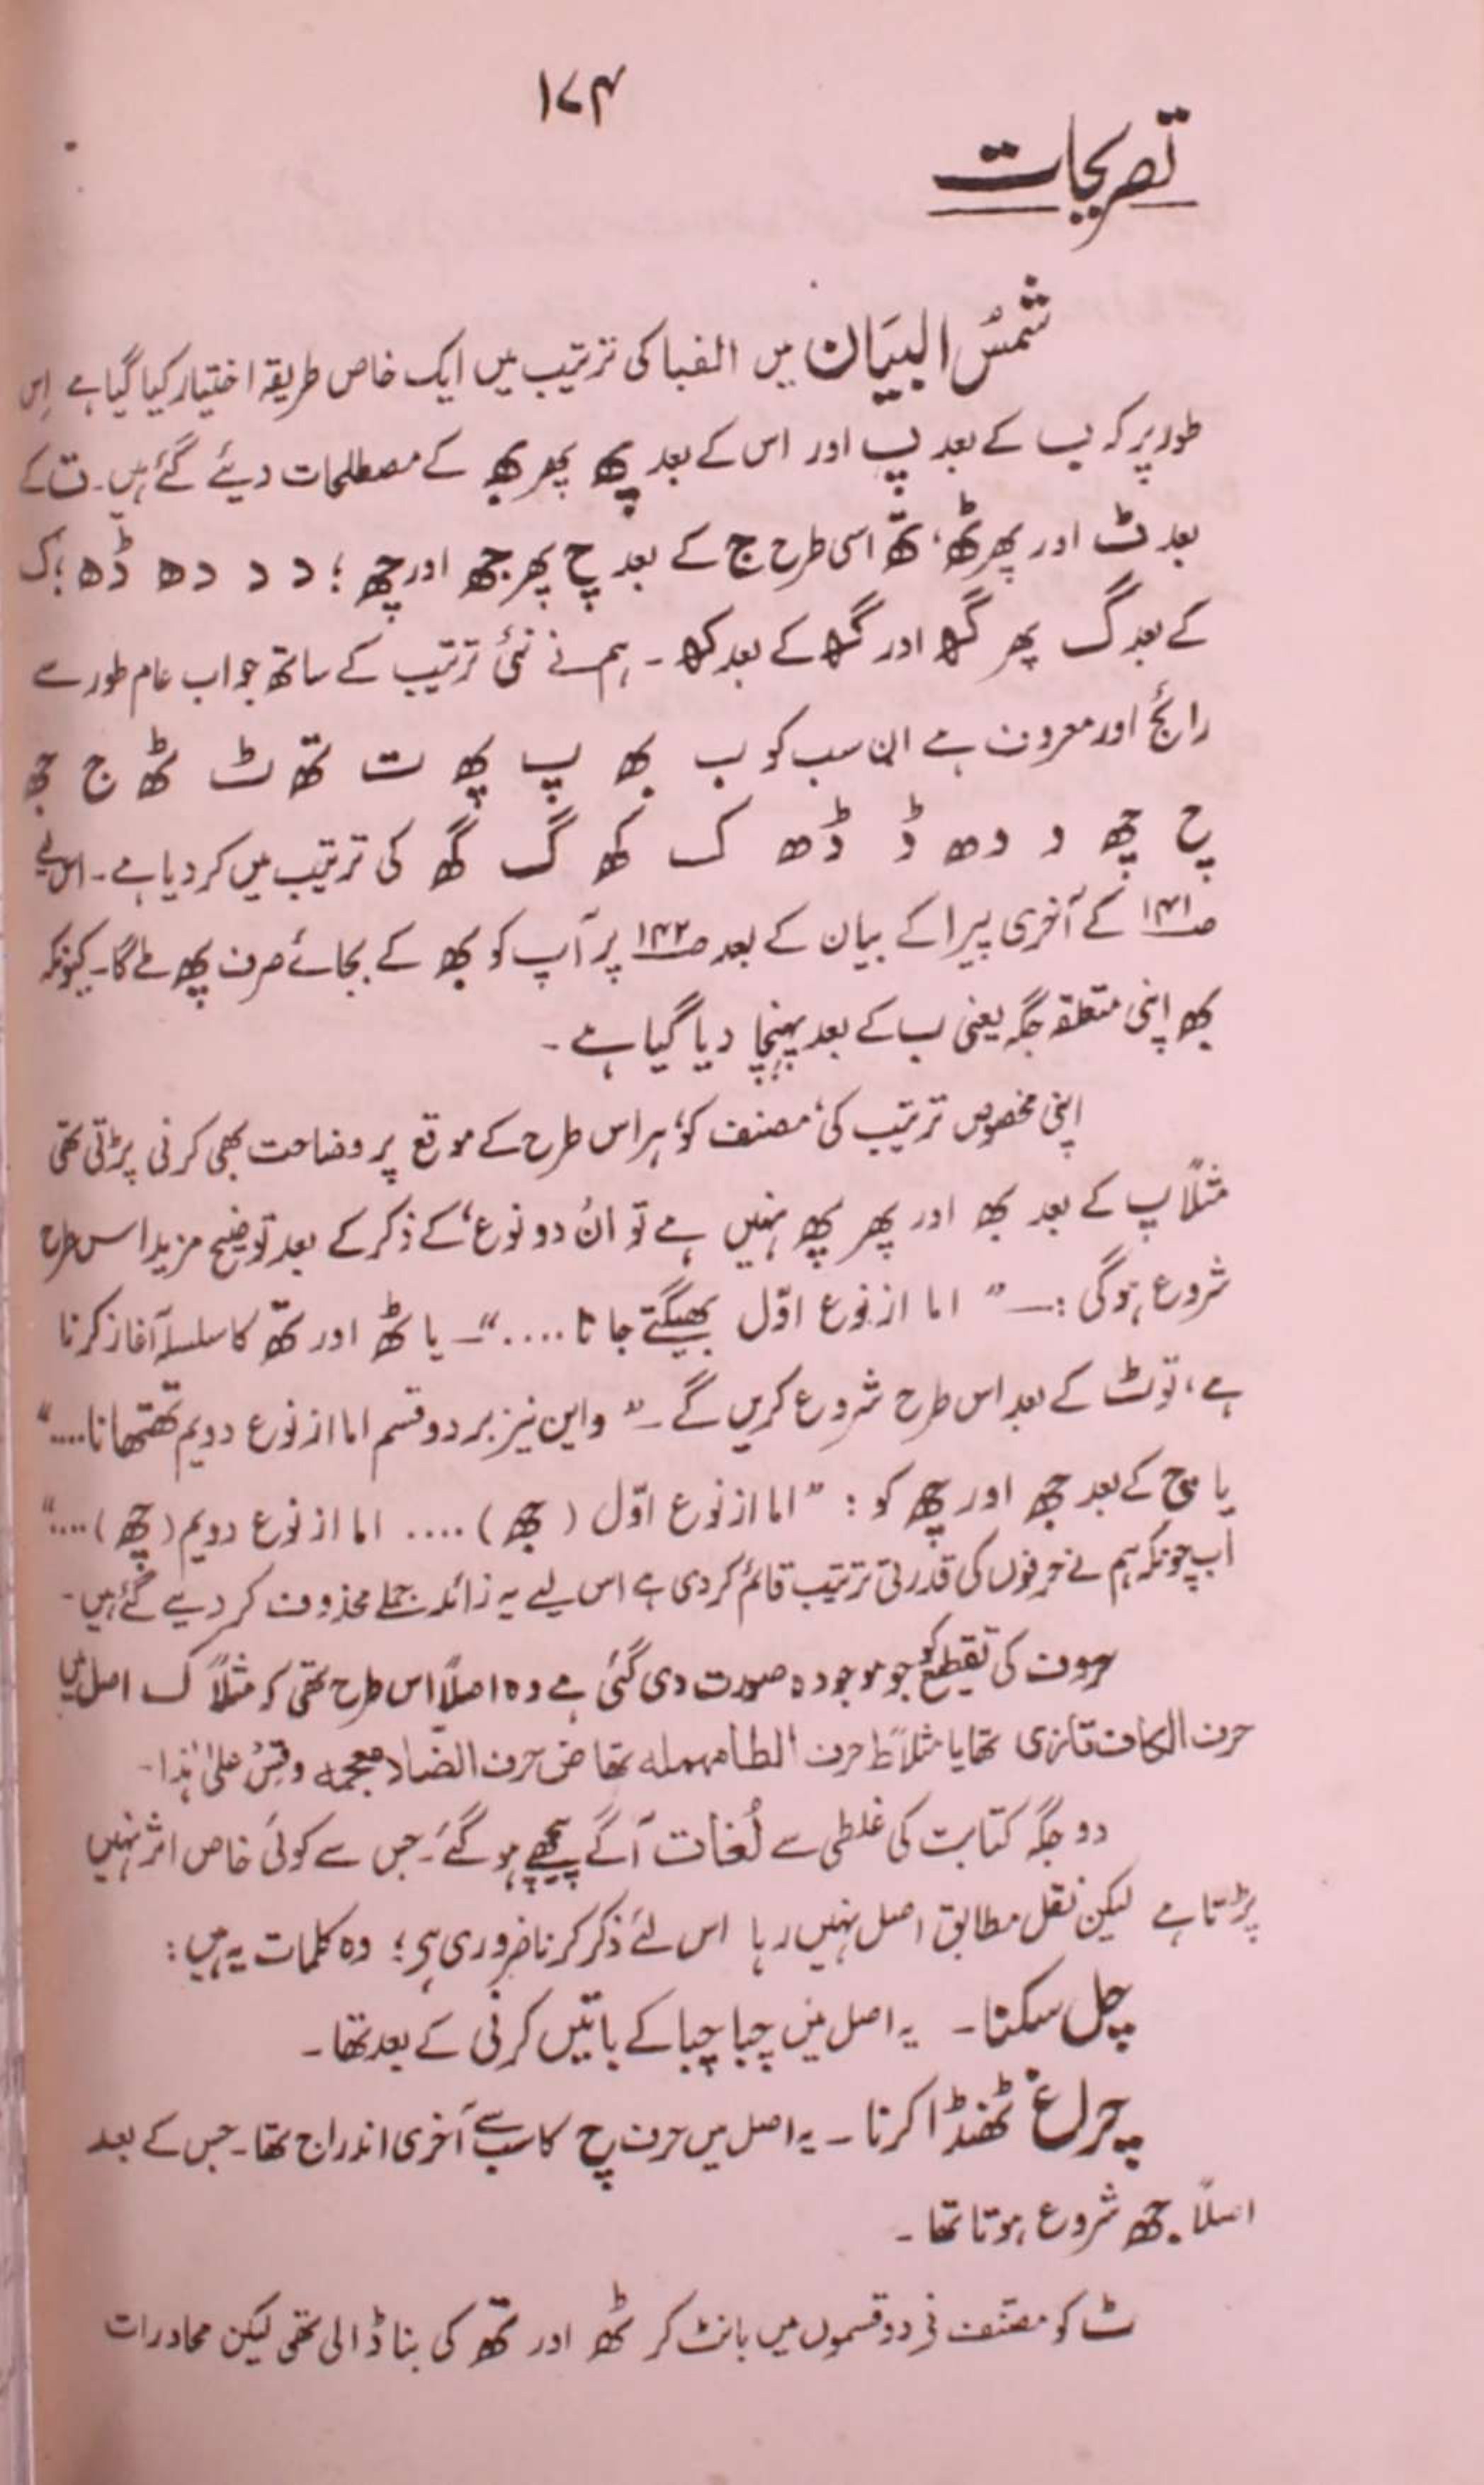 ۱۷۴
تصریحات
شمسُ البیَان میں الفبا کی ترتیب میں ایک خاص طریقہ اختیار کیا گیا ہے اِس
طور پر کہ ب کے بعد پ اور اس کے بعد پھ پھر بھ کے مصطلحات دیئے گئے ہیں۔ ت کے
بعد ٹ اور پھر ٹھ، تھ اسی طرح ج کے بعد چ پھر جھ اور چھ ؛ د د دھ ڈھ ؛ ک
کے بعد گ پھر گھ اور گھ کے بعد کھ ۔ ہم نے نئی ترتیب کے ساتھ جو اب عام طور سے
رائج اور معروف ہے ان سب کو ب بھ پ پھ ت تھ ٹ ٹھ ج جھ
چ چھ د دھ ڈ ڈھ ک کھ گ گھ کی ترتیب میں کر دیا ہے ۔ اس لیے
صـ۱۴۱ کے آخری پیرا کے بیان کے بعد صـ۱۴۲ پر آپ کو بھ کے بجائے صرف پھ ملے گا۔ کیونکہ
بھ اپنی متعلقہ جگہ یعنی ب کے بعد پہنچا دیا گیا ہے ۔
اپنی مخصوص ترتیب کی، مصنف کو، ہر اس طرح کے موقع پر وضاحت بھی کرنی پڑتی تھی
مثلاً پ کے بعد بھ اور پھر پھ نہیں ہے تو انُ دو نوع، کے ذکر کے بعد توضیح مزید اس طرح
شروع ہوگی :۔ " اما از نوع اوّل بھیگتے جانا ...." ۔ یا ٹھ اور تھ کا سلسلہ آغاز کرنا
ہے، تو ٹ کے بعد اس طرح شروع کریں گے ۔ " واین نیز بر دو قسم اما از نوع دویم تھتھانا ...."
یا چ کے بعد جھ اور چھ کو : " اما از نوع اوّل ( جھ ) .... اما از نوع دویم ( چھ ) ...."
اب چونکہ ہم نے حرفوں کی قدرتی ترتیب قائم کر دی ہے اس لیے یہ زائد جملے محذوف کر دیے گئے ہیں ۔
حروف کی تقطیع کو جو موجودہ صورت دی گئی ہے وہ اصلاً اس طرح تھی کہ مثلاً ک اصل میں
حرف الکاف تازی تھا یا مثلاً ط حرف الطا مہملہ تھا ض حرف الضاد معجمہ وقِسْ علیٰ ہٰذا۔
دو جگہ کتابت کی غلطی سے لُغات آگے پیچھے ہو گئے۔ جس سے کوئی خاص اثر نہیں
پڑتا ہے لیکن نقل مطابق اصل نہیں رہا اس لئے ذکر کرنا ضروری ہے؛ وہ کلمات یہ ہیں :
چل سکنا ۔ یہ اصل میں چبا چبا کے باتیں کرنی کے بعد تھا ۔
چراغ ٹھنڈا کرنا ۔ یہ اصل میں حرف چ کا سب سے آخری اندراج تھا ۔ جس کے بعد
اصلاً جھ شروع ہوتا تھا ۔
ٹ کو مصنف نے دو قسموں میں بانٹ کر ٹھ اور تھ کی بنا ڈالی تھی لیکن محاورات